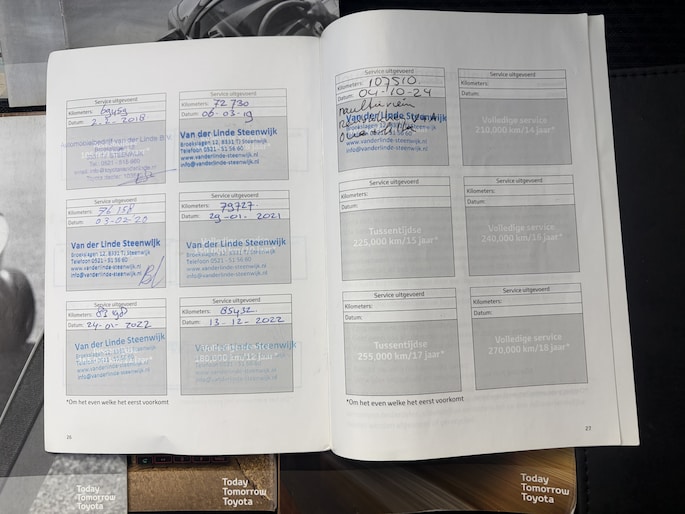 Service uitgevoerd
Kilometers: 69459
Datum: 2018
Automobielbedrijf van der Linde B.V.
STEENWIJK
Service uitgevoerd
Kilometers: 72 730
Datum: 06-03-19
Van der Linde Steenwijk
Broekslagen 12, 8331 TJ Steenwijk
Telefoon 0521 - 51 56 60
www.vanderlinde-steenwijk.nl
info@vanderlinde-steenwijk.nl
Service uitgevoerd
Kilometers: 76 158
Datum: 03-02-20
Van der Linde Steenwijk
Broekslagen 12, 8331 TJ Steenwijk
Telefoon 0521 - 51 56 60
www.vanderlinde-steenwijk.nl
info@vanderlinde-steenwijk.nl
Service uitgevoerd
Kilometers: 79727
Datum: 29-01-2021
Van der Linde Steenwijk
Broekslagen 12, 8331 TJ Steenwijk
Telefoon 0521 - 51 56 60
www.vanderlinde-steenwijk.nl
info@vanderlinde-steenwijk.nl
Service uitgevoerd
Kilometers:
Datum: 2022
Van der Linde Steenwijk
www.vanderlinde-steenwijk.nl
info@vanderlinde-steenwijk.nl
Service uitgevoerd
Kilometers: 85432
Datum: 13-12-2022
Van der Linde Steenwijk
180,000 km/12 jaar*
www.vanderlinde-steenwijk.nl
info@vanderlinde-steenwijk.nl
*Om het even welke het eerst voorkomt
26
Service uitgevoerd
Kilometers: 107510
Datum: 04-10-24
Van der Linde Steenwijk
www.vanderlinde-steenwijk.nl
info@vanderlinde-steenwijk.nl
Service uitgevoerd
Kilometers:
Datum:
Volledige service
210,000 km/14 jaar*
Service uitgevoerd
Kilometers:
Datum:
Tussentijdse
225,000 km/15 jaar*
Service uitgevoerd
Kilometers:
Datum:
Volledige service
240,000 km/15 jaar*
Service uitgevoerd
Kilometers:
Datum:
Tussentijdse
255,000 km/17 jaar*
Service uitgevoerd
Kilometers:
Datum:
Volledige service
270,000 km/18 jaar*
*Om het even welke het eerst voorkomt
27
Today
Tomorrow
Toyota
Today
Tomorrow
Toyota
Today
Tomorrow
Toyota